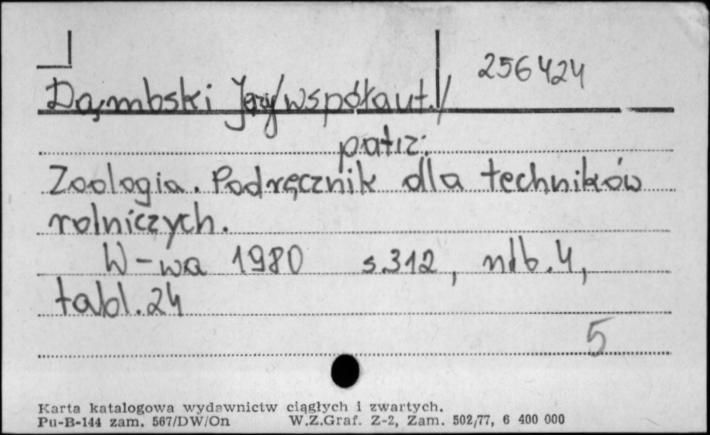 256424
Dąmbski Jerzy/współaut./
patrz:
Zoologia. Podręcznik dla techników
rolniczych.
W-wa 1980 s.312, nlb.4,
tabl.24
5
Karta katalogowa wydawnictw ciągłych i zwartych.
Pu-B-144 zam. 567/DW/On W.Z.Graf. Z-2, Zam. 502/77, 6 400 000